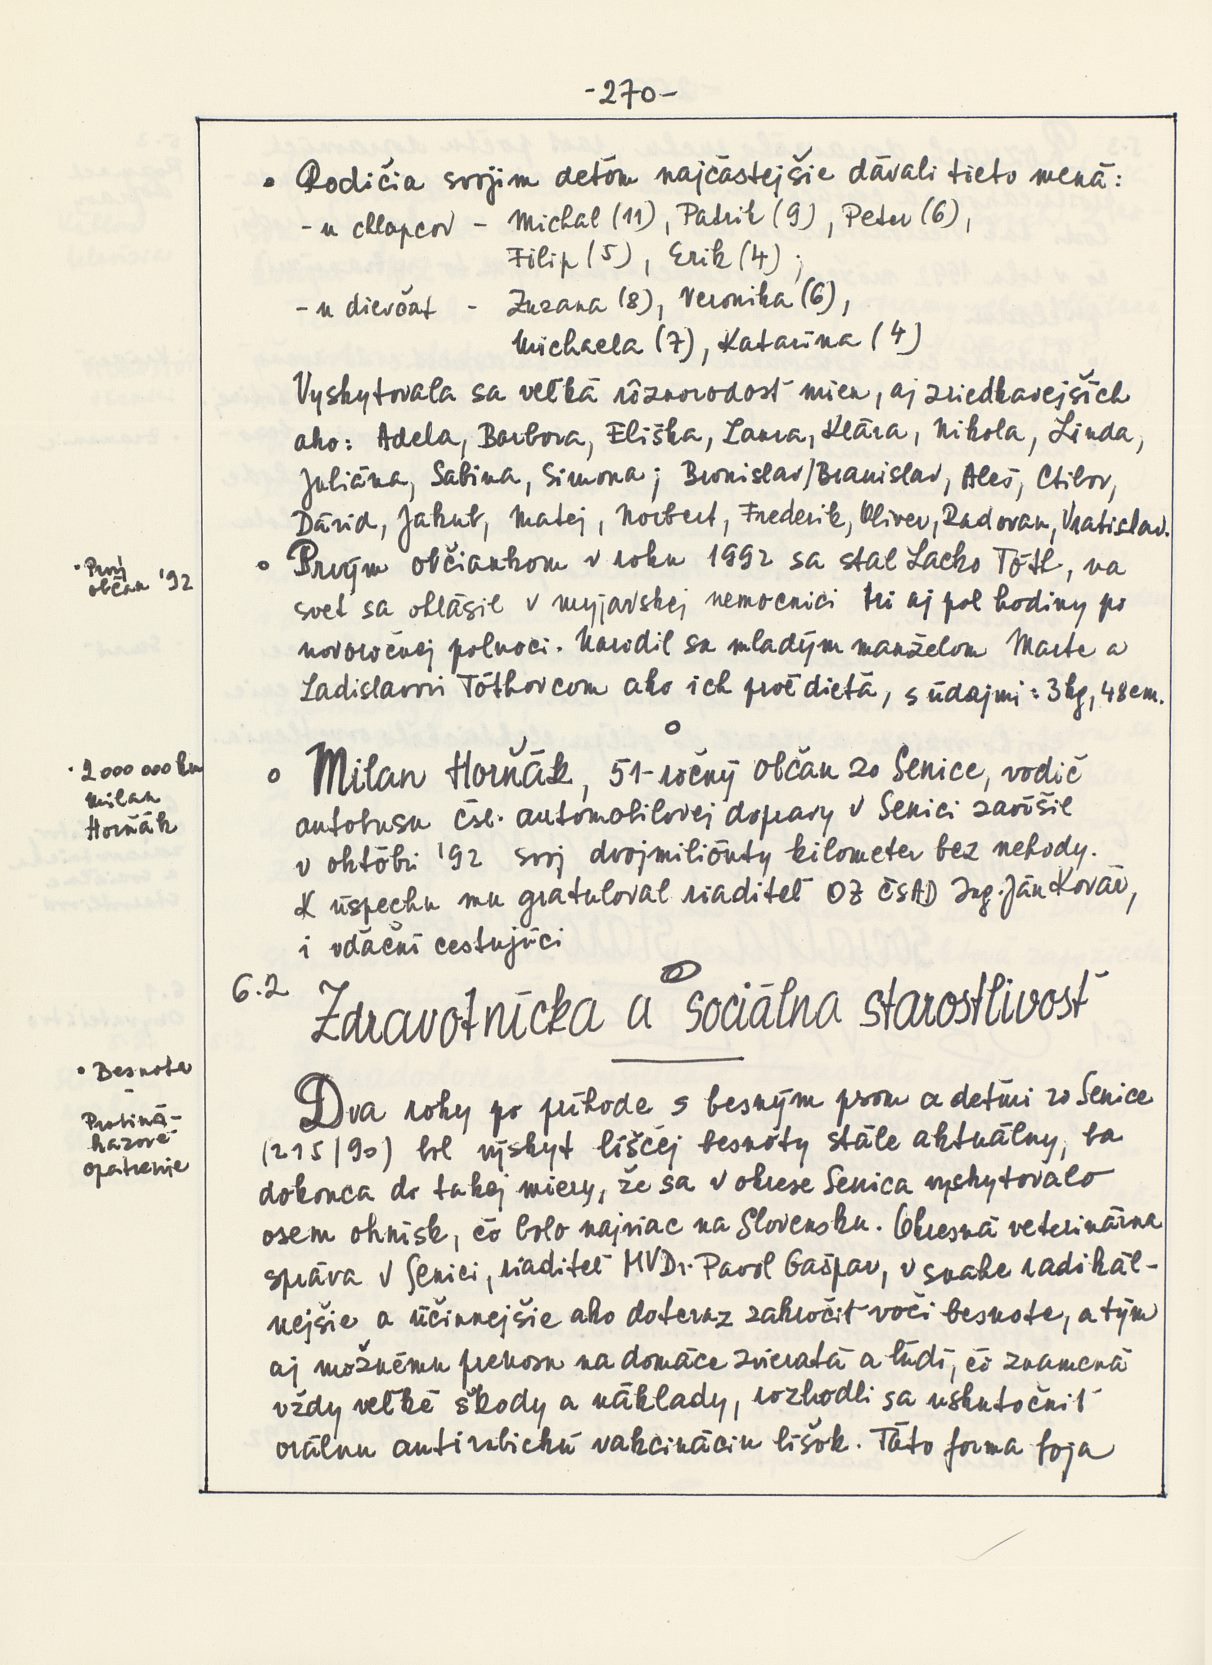 -270-
• Rodičia svojim deťom najčastejšie dávali tieto mená:
- u chlapcov - Michal (11), Patrik (9), Peter (6),
Filip (5), Erik (4);
- u dievčat - Zuzana (8), Veronika (6),
Michaela (7), Katarína (4)
Vyskytovala sa veľká rôznorodosť mien, aj zriedkavejších
ako: Adela, Barbora, Eliška, Laura, Klára, Nikola, Linda,
Juliána, Sabina, Simona; Bronislav/Branislav, Aleš, Ctibor,
Dávid, Jakub, Matej, Norbert, Frederik, Oliver, Radovan, Vratislav.
• Prvý
občan '92
• Prvým občiankom v roku 1992 sa stal Lacko Tóth, na
svet sa ohlásil v myjavskej nemocnici tri aj pol hodiny po
novoročnej polnoci. Narodil sa mladým manželom Marte a
Ladislavovi Tóthovcom ako ich prvé dieťa, s údajmi: 3kg, 48cm.
• 2 000 000 km
Milan
Horňák
• Milan Horňák, 51-ročný občan zo Senice, vodič
autobusu Čsl. automobilovej dopravy v Senici zavŕšil
v októbri '92 svoj dvojmiliónty kilometer bez nehody.
K úspechu mu gratuloval riaditeľ OZ ČSAD Ing. Ján Kovár,
i vďační cestujúci
6.2 Zdravotnícka a sociálna starostlivosť
• Besnota
-
Protiná-
kazové
opatrenie
Dva roky po príhode s besným psom a deťmi zo Senice
(215/90) bol výskyt líščej besnoty stále aktuálny, ba
dokonca do takej miery, že sa v okrese Senica vyskytovalo
osem ohnísk, čo bolo najviac na Slovensku. Okresná veterinárna
správa v Senici, riaditeľ MVDr. Pavol Gašpar, v snahe radikál-
nejšie a účinnejšie ako doteraz zakročiť voči besnote, a tým
aj možnému prenosu na domáce zvieratá a ľudí, čo znamená
vždy veľké škody a náklady, rozhodli sa uskutočniť
orálnu antirabickú vakcináciu líšok. Táto forma boja